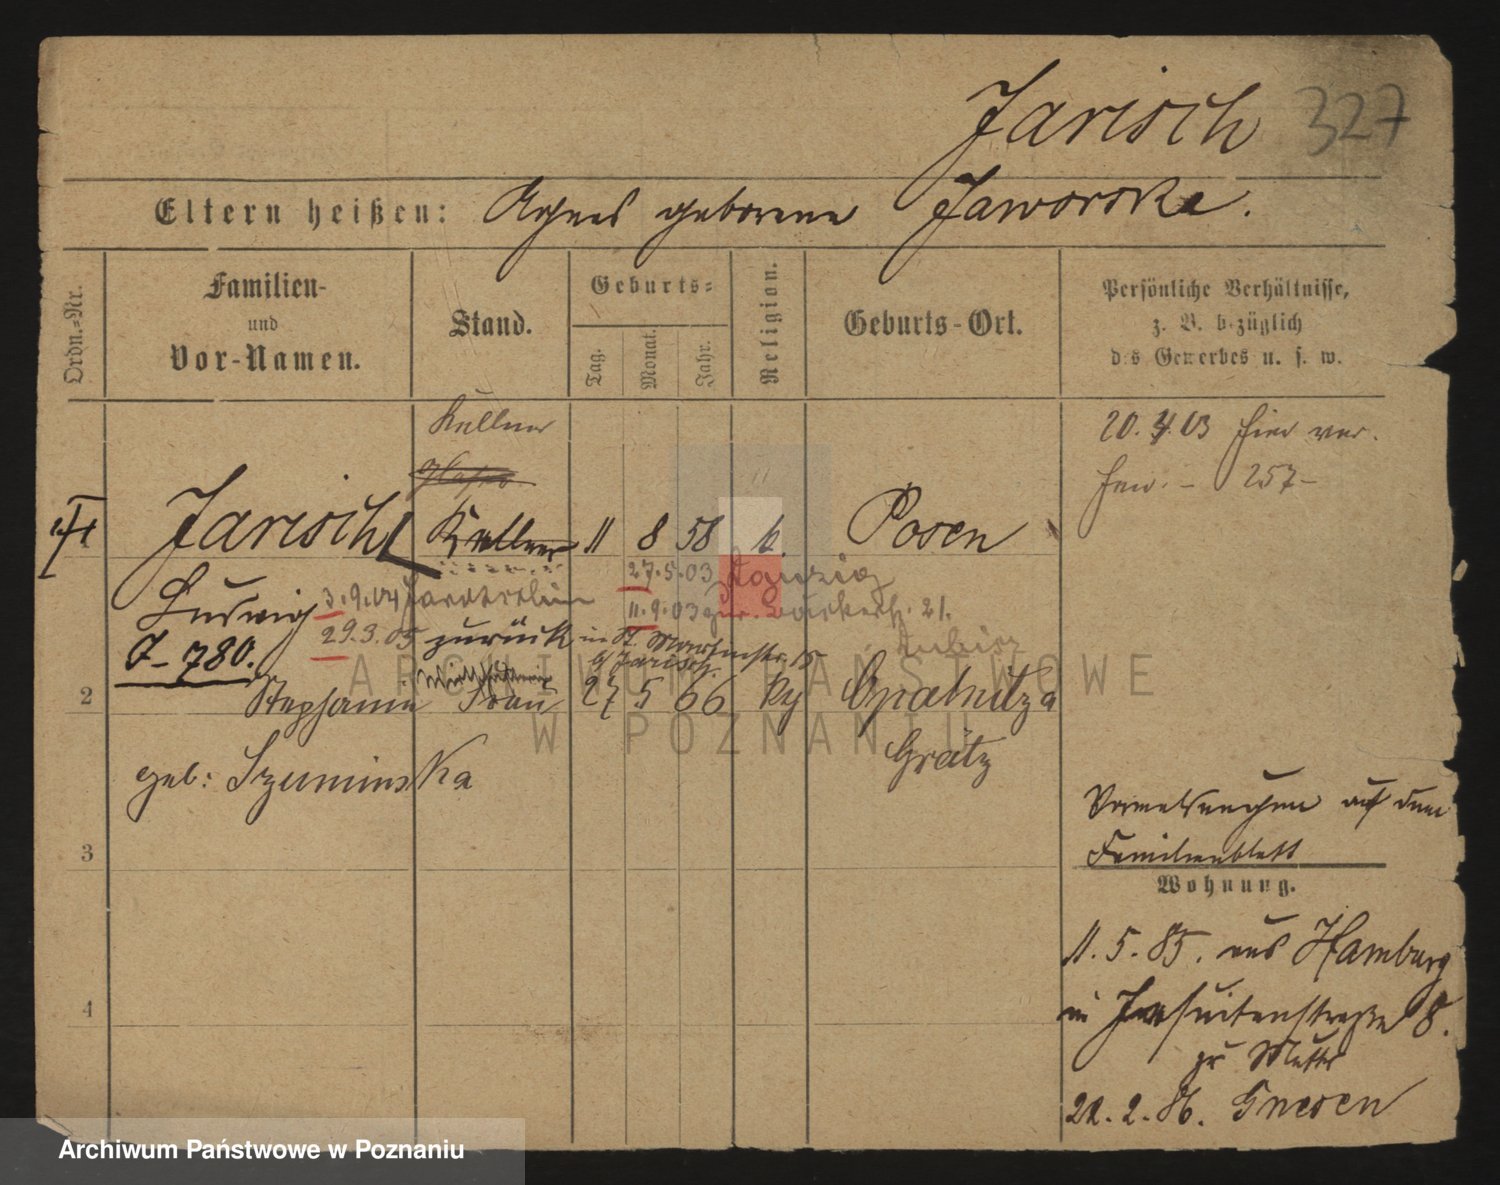 Jarisch 327
Eltern heißen: Agnes geborene Jaworska.
Ordn.=Nr.
Familien-
und
Vor-Namen.
Stand.
Geburts=
Tag.
Monat.
Jahr.
Religion.
Geburts-Ort.
Persönliche Verhältnisse,
z. B. bezüglich
des Gewerbes u. s. w.
Kellner
20. 4. 03 hier
257
Jarisch Kellner 11 8 58 k. Posen
27.5.03 Danzig
Ludwig 3.9.04
11.9.03 21.
29.3.05 zurück in St. Martinstr. 15
b/ Jarisch
J-780.
2 Stephanie Frau 27 5 66 k Opalenitza
Grätz
geb: Szuminska
3
Vermeldungen auf dem
Familienblatt
Wohnung.
4
11. 5. 85. aus Hamburg
in Jesuitenstraße 8.
zu Mutter
22. 2. 86. Gnesen
ARCHIWUM PAŃSTWOWE
W POZNANIU
Archiwum Państwowe w Poznaniu